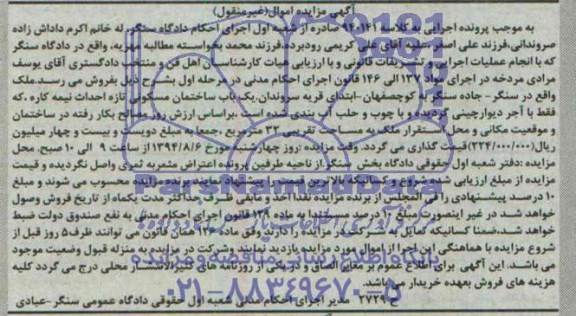 آگهی مزایده اموال(غیرمنقول)
به موجب پرونده اجرایی به کلاسه ۹۴۰۱۴۱ صادره از شعبه اول اجرای احکام دادگاه سنگر له خانم اکرم داداش زاده
صروندانی،فرزند علی اصغر علیه آقای علی کریمی رودبرده فرزند محمد بخواسته مطالبه مهریه، واقع در دادگاه سنگر
که با انجام عملیات اجرایی و تشریفات قانونی و با ارزیابی هیات کارشناسان اهل فن و منتخب دادگستری آقای یوسف
مرادی مردخه در اجرای مواد ۱۳۷ الی ۱۴۶ قانون اجرای احکام مدنی در مرحله اول بشرح ذیل بفروش می رسد.ملک
واقع در سنگر - جاده سنگر به کوچصفهان -ابتدای قریه سروندان.یکباب ساختمان مسکونی تازه احداث نیمه کاره .که
فقط با آجر دیوارچینی گردیده و با چوب و حلب آب بندی شده است .براساس ارزش روز مصالح بکار رفته در ساختمان
و موقعیت مکانی و محل استقرار ملک به مساحت تقریبی ۳۲ مترمربع .جمعا به مبلغ دویست و بیست و چهار میلیون
ریال(۲۲۴/۰۰۰/۰۰۰) قیمت گذاری می گردد. وقت مزایده :روز چهارشنبه مورخ ۱۳۹۴/۸/۶ از ساعت ۹ الی ۱۰ صبح. محل
مزایده :دفتر شعبه اول حقوقی دادگاه بخش سنگر از ناحیه طرفین پرونده اعتراض مثمربه ثمری واصل نگردیده و قیمت
مزایده از مبلغ ارزیابی شده شروع و کسانیکه بالاترین قیمت را پیشنهاد نمایند برنده مزایده محسوب می شوند و مبلغ
۱۰ درصد پیشنهادی را فی المجلس از برنده مزایده نقدا اخذ و مابقی ظرف حداکثر مدت یکماه از تاریخ فروش وصول
خواهد شد. در غیر اینصورت مبلغ ۱۰ درصد مستندا به ماده ۱۲۹ قانون اجرای احکام مدنی به نفع صندوق دولت ضبط
خواهد شد.ضمنا کسانیکه مایل به شرکت در مزایده را دارند وفق ماده ۱۲۶ همان قانون می توانند ظرف ۵ روز قبل از
شروع مزایده با هماهنگی این اجرا از اموال مورد مزایده بازدید نمایند وشرکت در مزایده به منزله قبول وضعیت موجود
می باشد. این آگهی برای اطلاع عموم بر معابر الصاق و در یکی از روزنامه های کثیرالانتشار محلی درج می گردد کلیه
هزینه های فروش بعهده خریدار می باشد.
ح ۲۷۲۹ مدیر اجرای احکام مدنی شعبه اول حقوقی دادگاه عمومی سنگر-عبادی
پایگاه اطلاع رسانی مناقصه و مزایده
۰۲۱-۸۸۳۴۹۶۷۰-۵